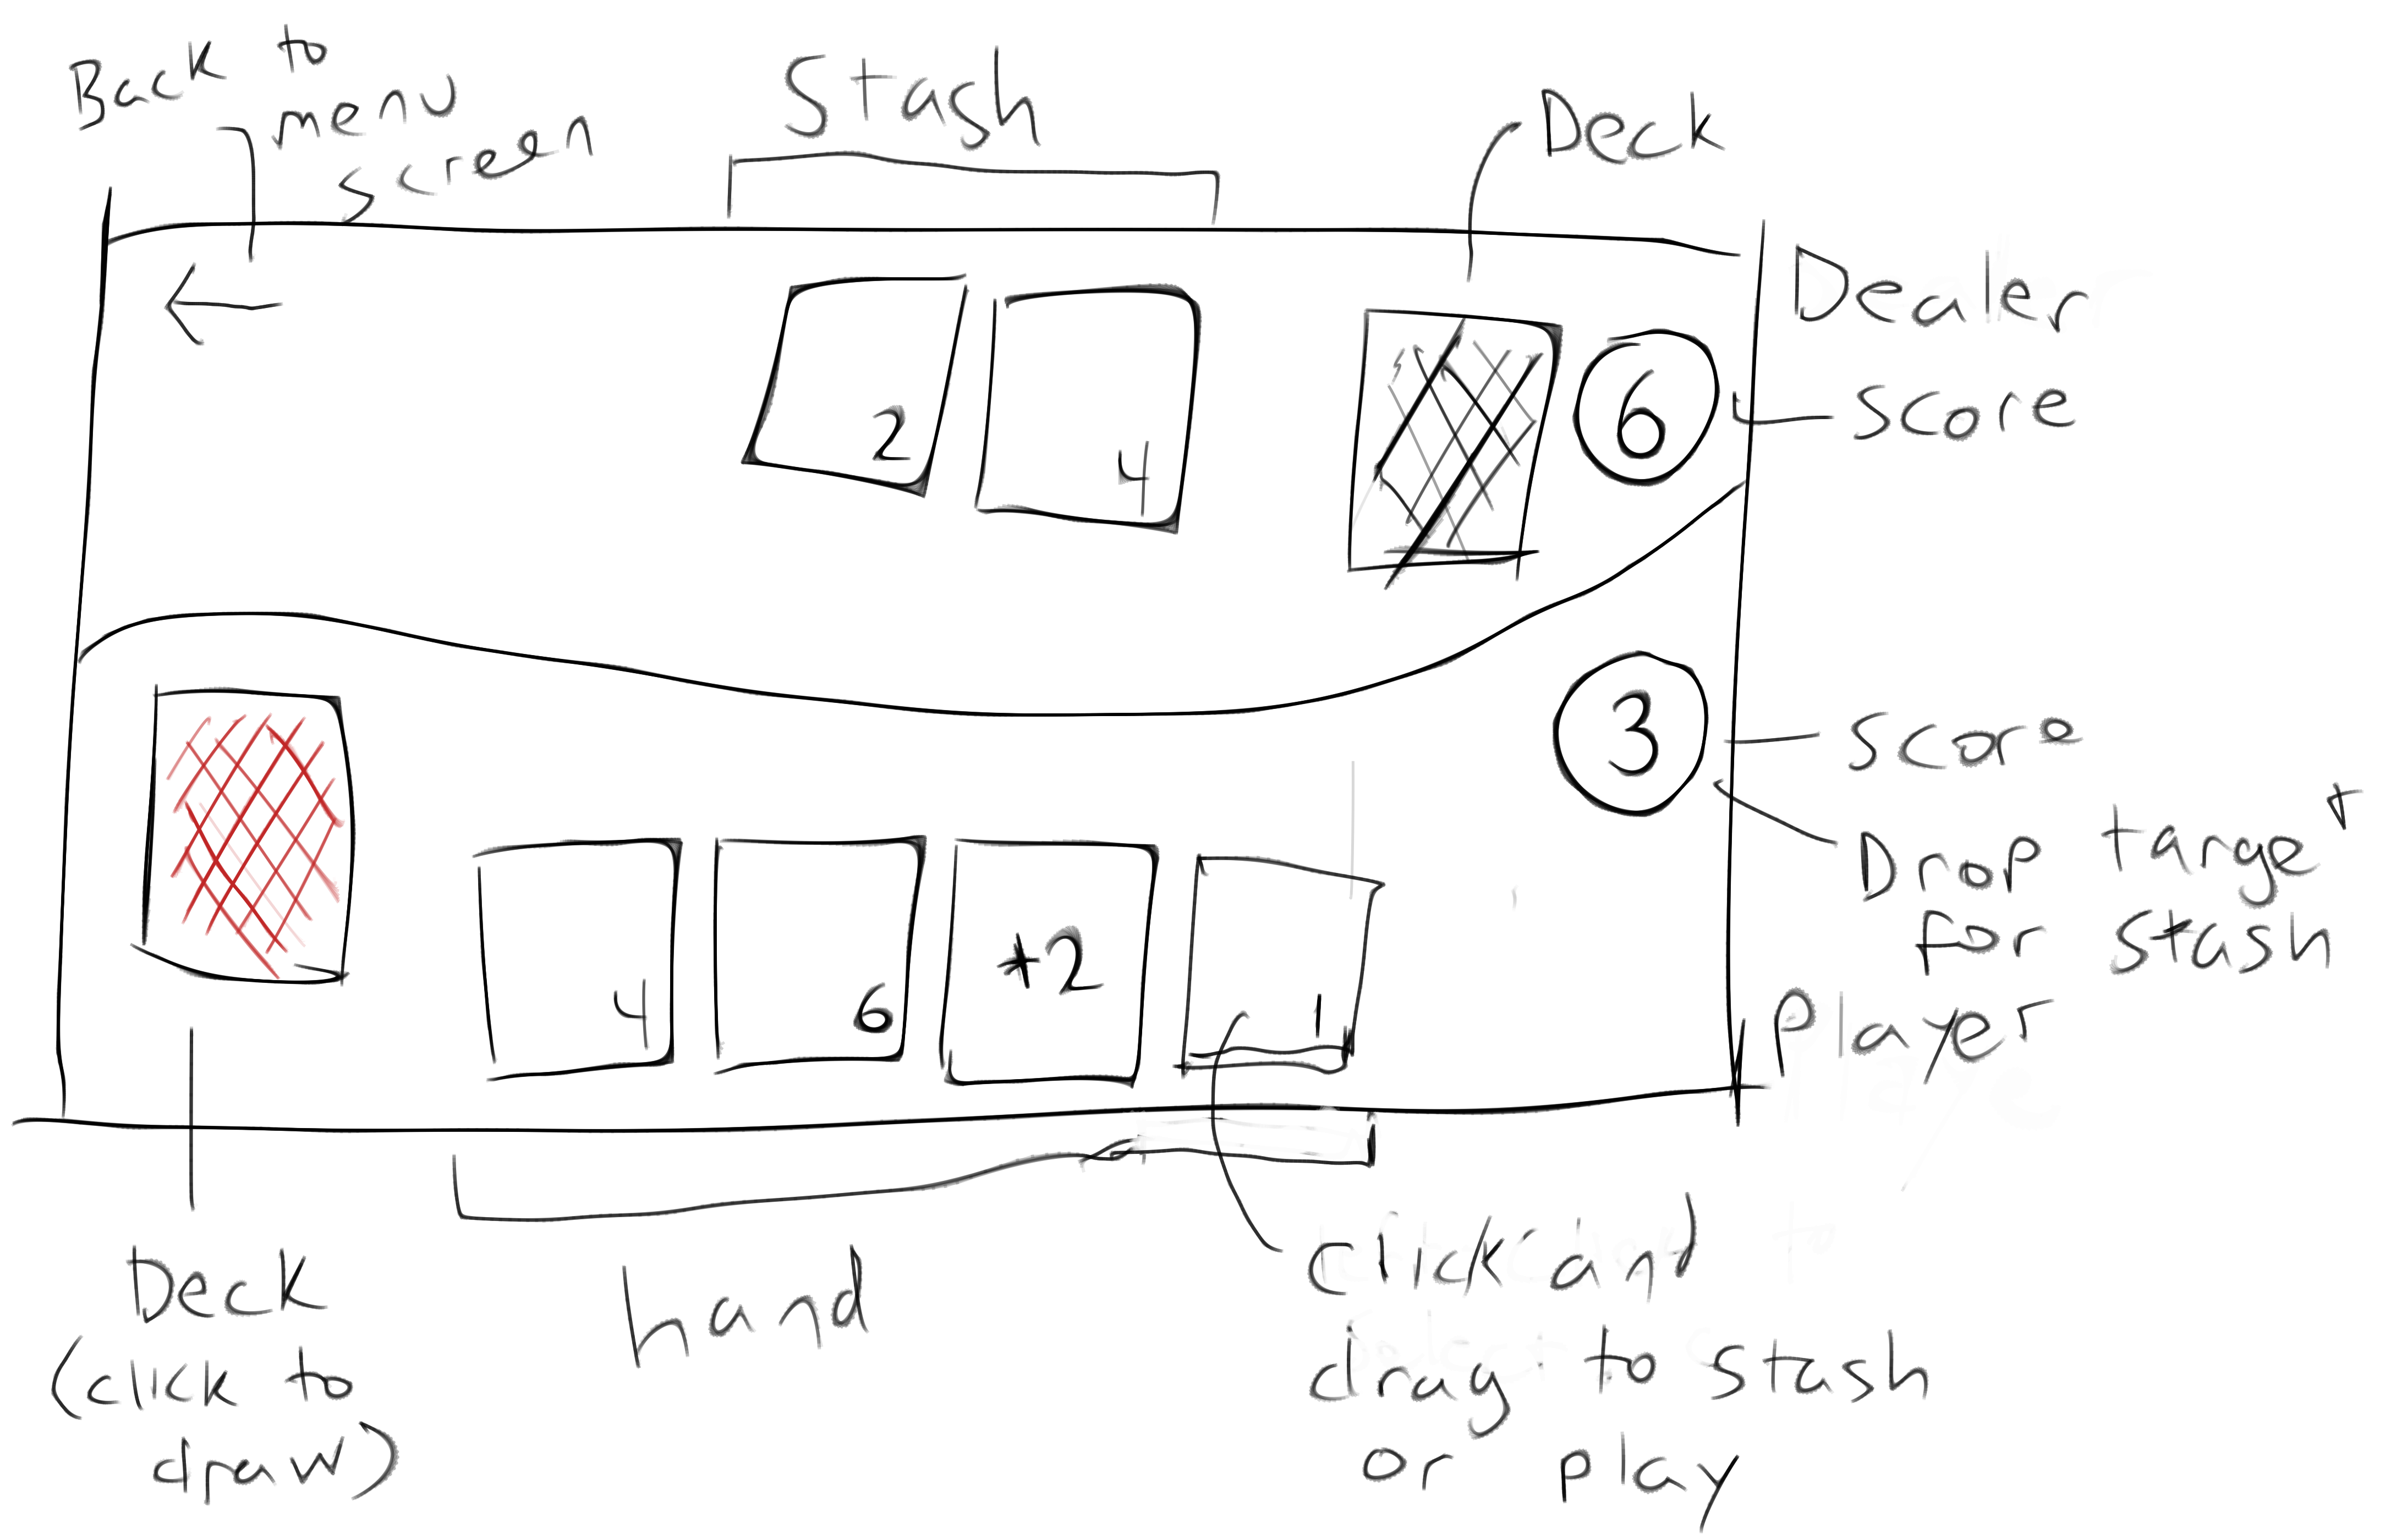 Back to
menu
screen
Stash
Deck
Dealer
score
2
4
6
3
score
Drop target
for stash
Player
4
6
+2
1
Deck
(click to
draw)
hand
click and
drag to stash
or play